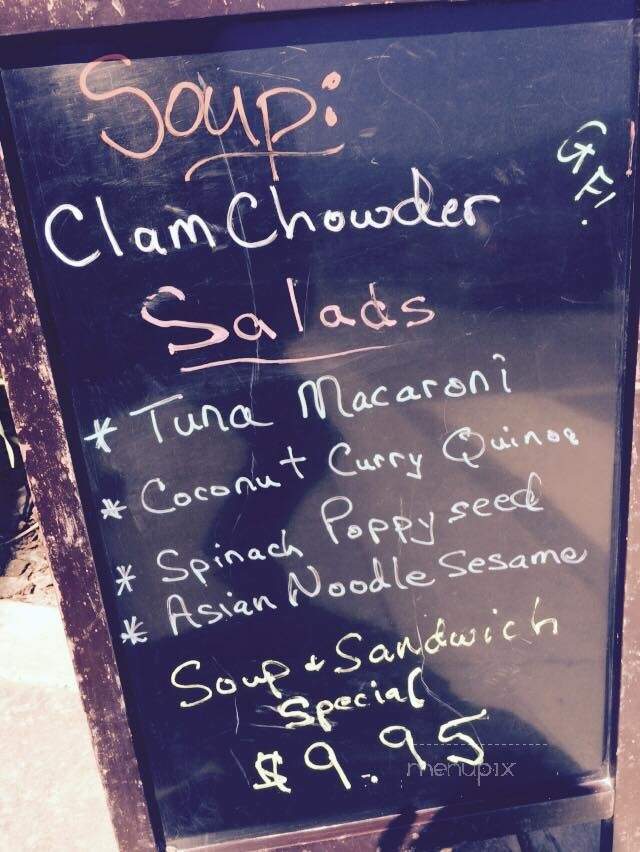 Soup:
GF!
Clam Chowder
Salads
* Tuna Macaroni
* Coconut Curry Quinoa
* Spinach Poppy seed
* Asian Noodle Sesame
Soup & Sandwich
Special
$9.95
menupix